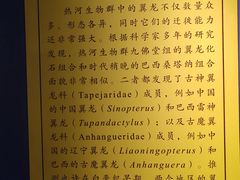 热河生物群中的翼龙不仅数量众
多、形态各异,同时它们的迁徙能力
还非常强大。根据科学家多年的研究
发现,热河生物群九佛堂组的翼龙化
石组合和时代稍晚的巴西桑塔纳组合
面貌非常相似。二者都发现了古神翼
龙科(Tapejaridae)成员,例如中
国的中国翼龙(Sinopterus)和巴西雷神
翼龙(Tupandactylus);以及古魔翼
龙科(Anhangueridae)成员,例如中
国的辽宁翼龙(Liaoningopterus)和
巴西的古魔翼龙(Anhanguera)。推